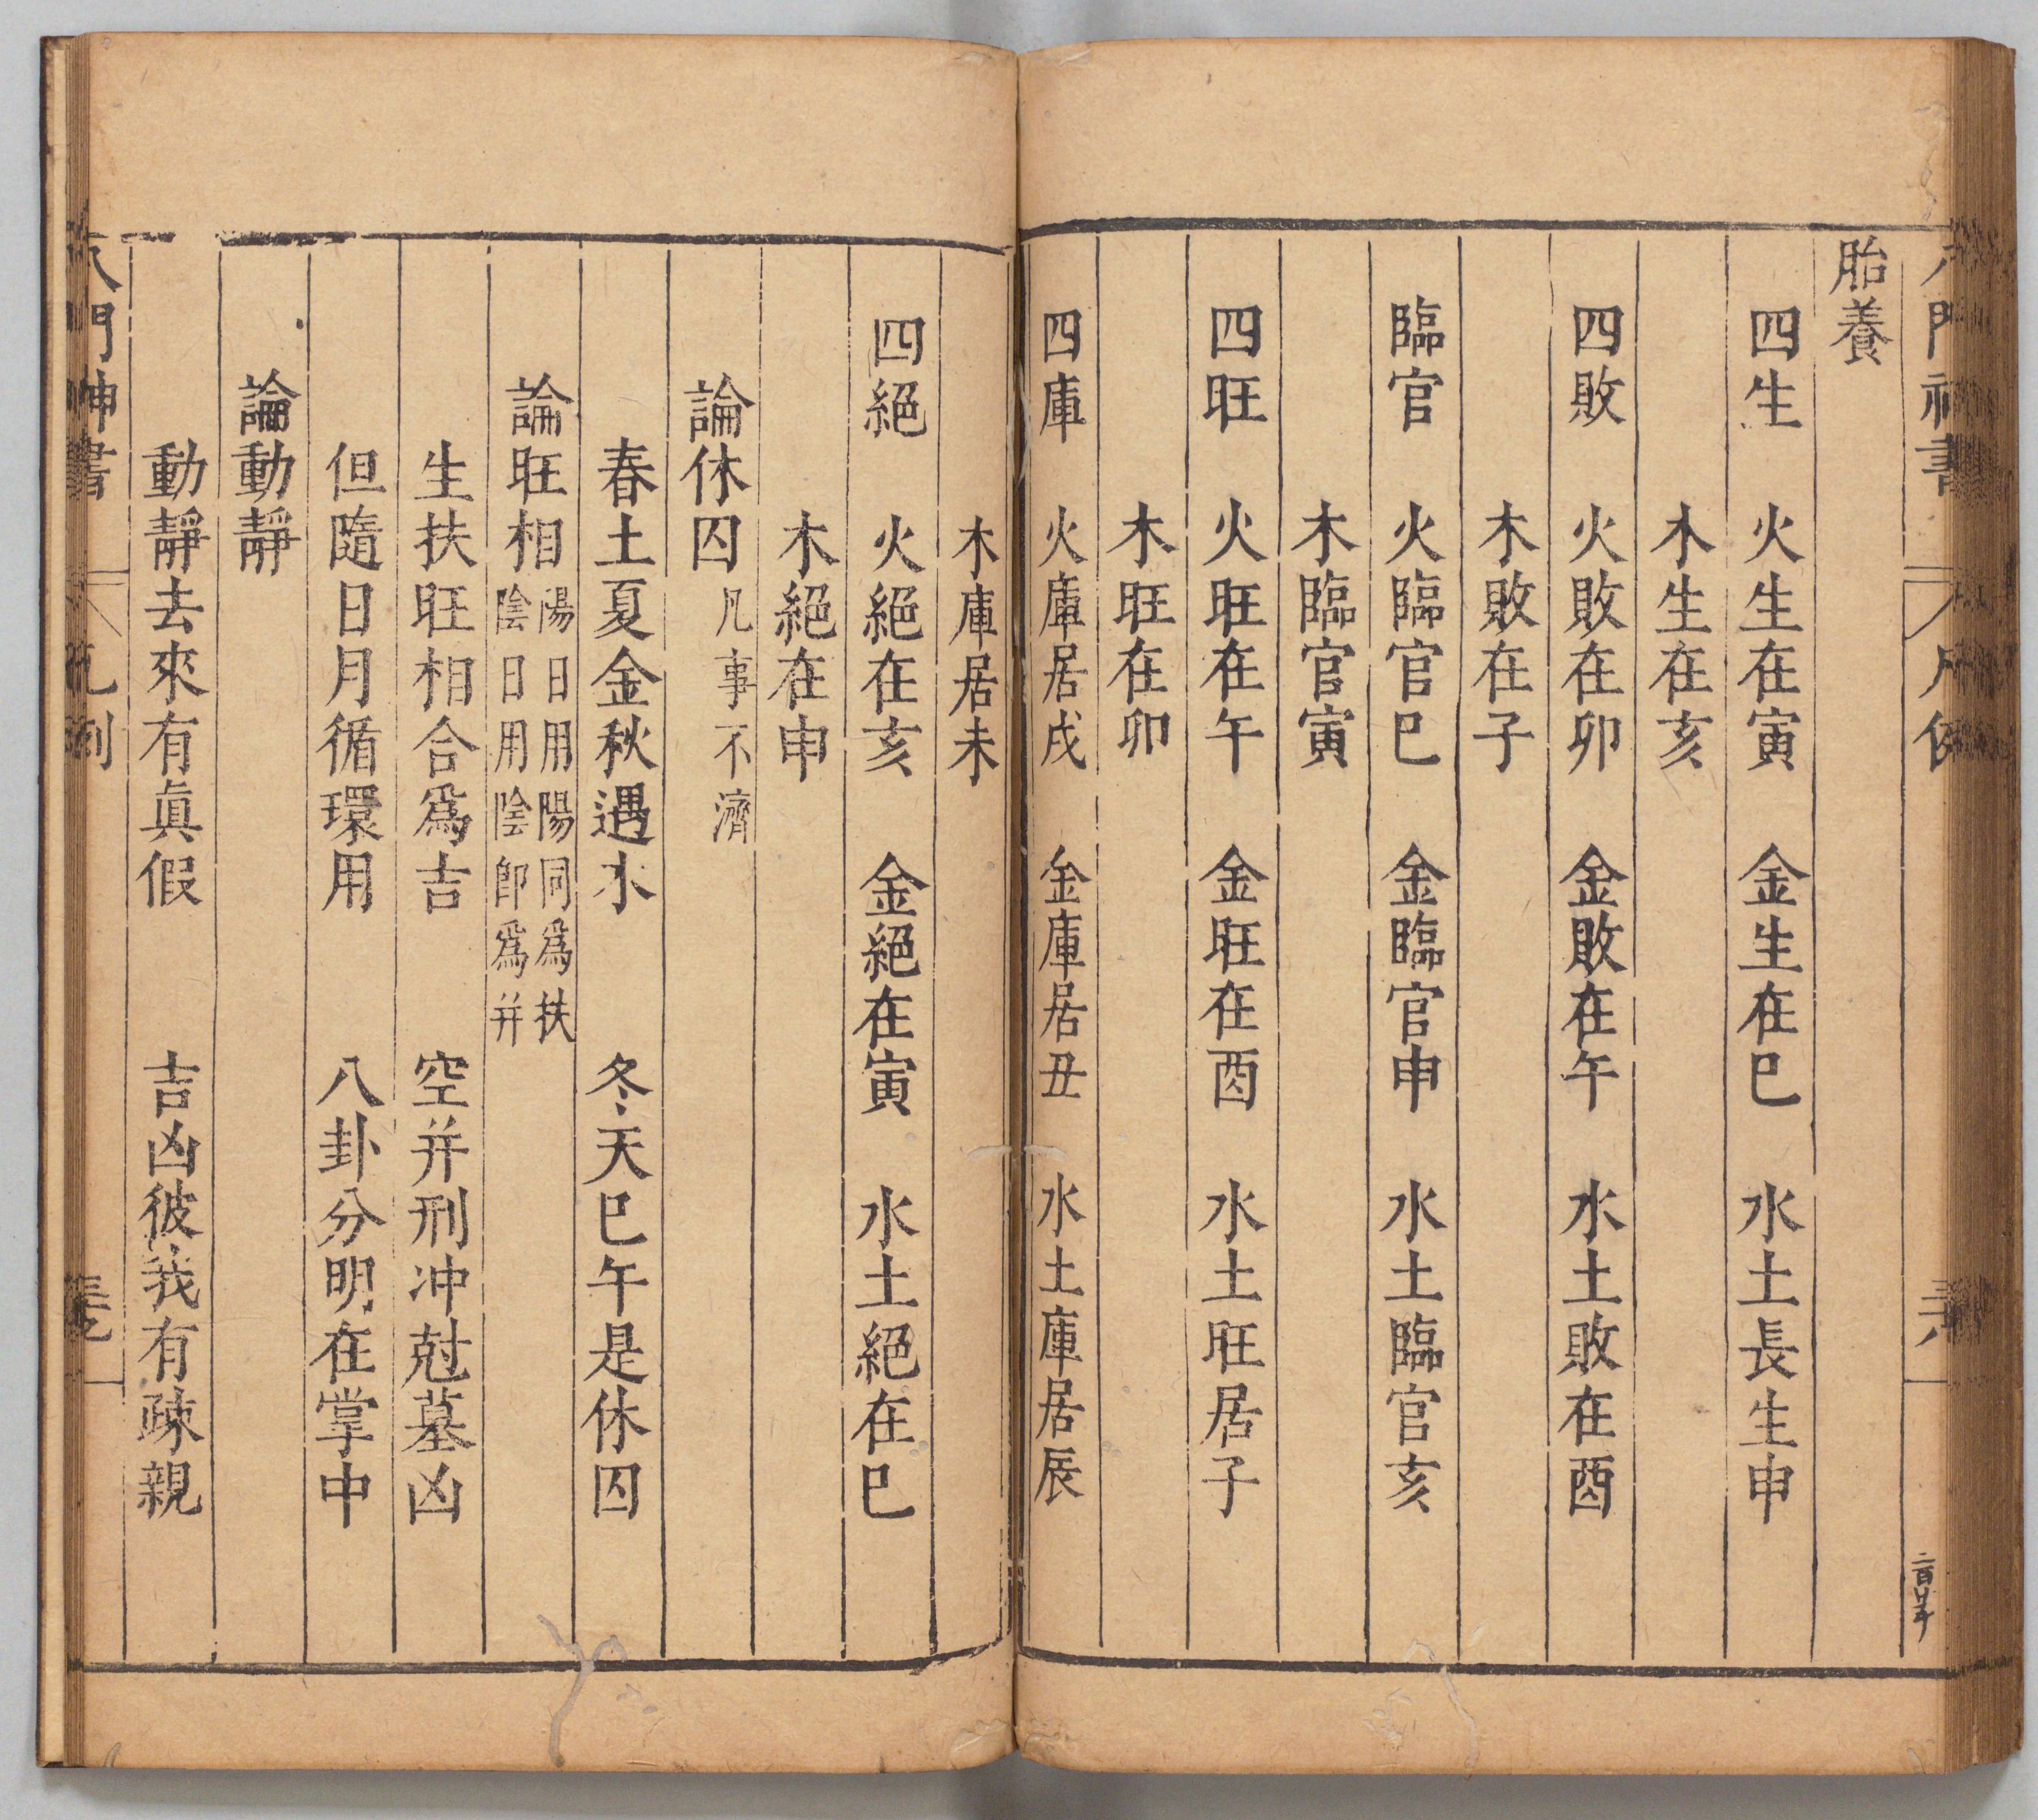 胎養
四生　火生在寅　金生在巳　水土長生申
木生在亥
四敗　火敗在卯　金敗在午　水土敗在酉
木敗在子
臨官　火臨官巳　金臨官申　水土臨官亥
木臨官寅
四旺　火旺在午　金旺在酉　水土旺居子
木旺在卯
四庫　火庫居戌　金庫居丑　水土庫居辰
木庫居未
四絕　火絕在亥　金絕在寅　水土絕在巳
木絕在申
論休囚　凡事不濟
春土夏金秋遇水　冬天巳午是休囚
論旺相　陽日用陽同為扶
陰日用陰即為并
生扶旺相合爲吉　空并刑冲尅墓凶
但隨日月循環用　八卦分明在掌中
論動靜
動靜去來有眞假　吉凶彼我有疎親
八門神書　凡例